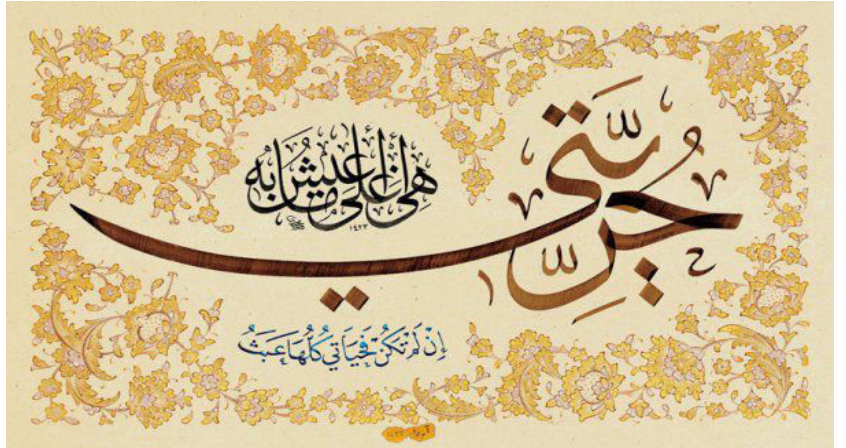 حُرِّيَّتي
هِيَ أَغلى ما أَعيشُ بِه
١٤٢٣
إِنْ لَمْ تَكُنْ فَحَيَاتي كُلُّهَا عَبَثُ